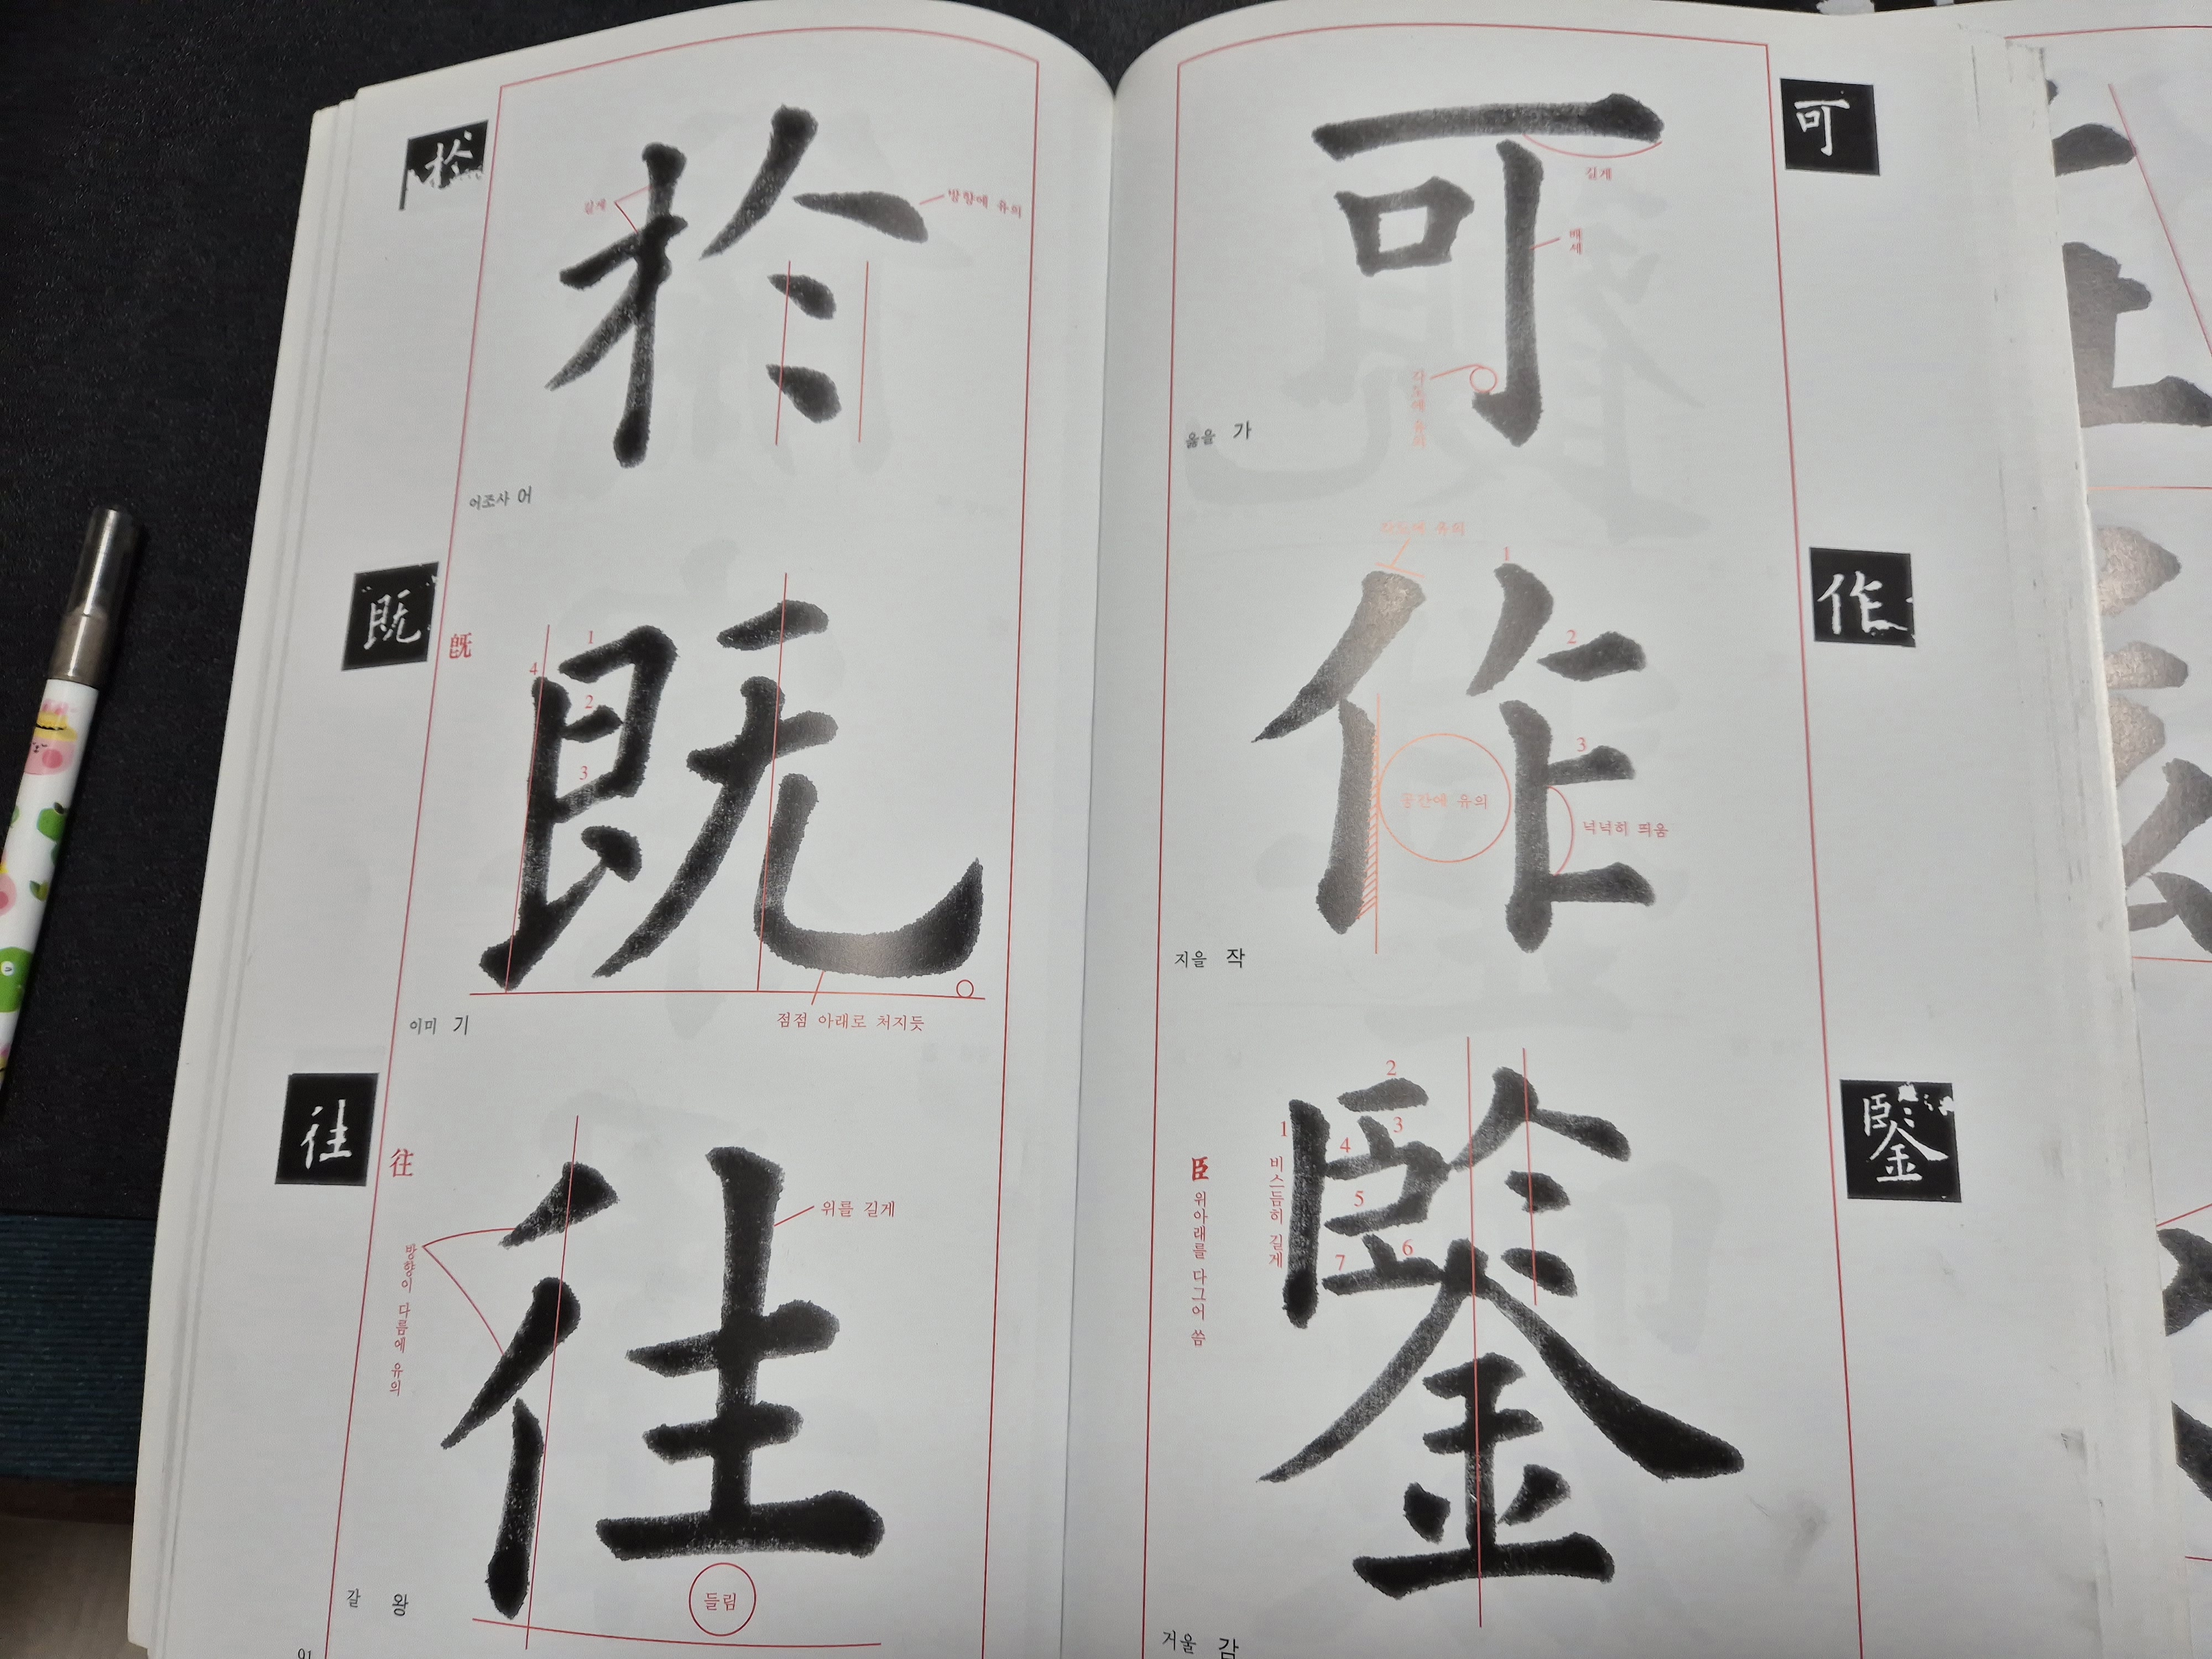 可
可
길게
배세
각도에 유의
옳을 가
作
作
각도에 유의
1
2
3
공간에 유의
넉넉히 띄움
지을 작
鑒
鑒
1
2
3
4
5
6
7
비스듬히 길게
臣 위아래를 다그어 씀
거울 감
於
於
길게
방향에 유의
어조사 어
既
旣
既
1
2
3
4
점점 아래로 처지듯
이미 기
往
往
往
위를 길게
방향이 다름에 유의
들림
갈 왕
91